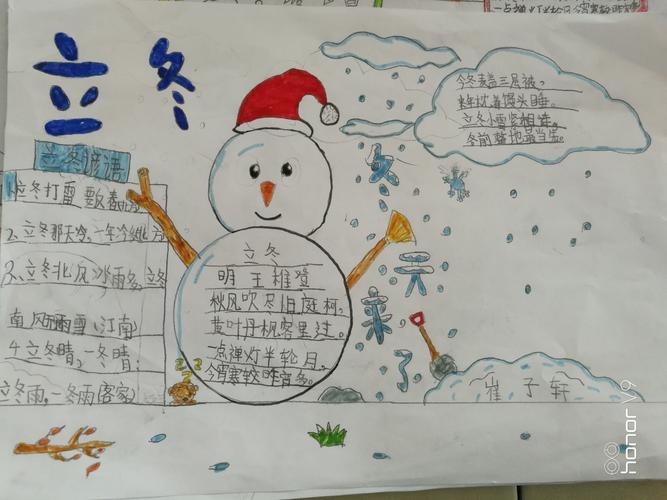 立冬
立冬谚语
1、立冬打雷
2、立冬那天冷,一年冷
3、立冬北风冰雨多,立冬
南风雨雪(江南)
4、立冬晴,一冬晴;
立冬雨,一冬雨(客家)
立冬
明 王稚登
秋风吹尽旧庭柯,
黄叶丹枫客里过。
一点禅灯半轮月,
今宵寒较昨宵多。
今冬麦盖三层被,
来年枕着馒头睡。
立冬小雪紧相连,
冬前整地最当先。
冬天来了
崔子轩
honor V9